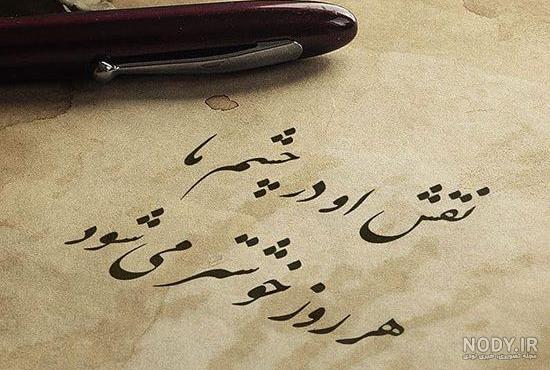 نقش او در چشم ما
هر روز خوشتر می شود
NODY.IR
مجله تصویری، خبری نودی